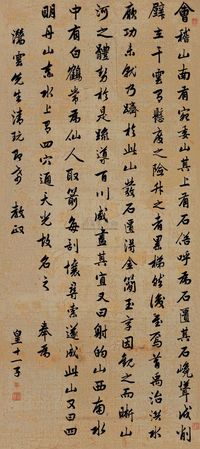 會稽山南有宛委山其上有石俗呼為石匱其石嶢聳成削
壁立干雲有懸度之險升之者累梯然後至焉昔禹治洪水
厥功未就乃躋於此山發石匱得金簡玉字因觀之而晰山
河之體勢於是疏導百川咸盡其宜又曰射的山西南水
中有白鶴常為仙人取箭每刮壤尋索遂成此山又曰四
明丹山赤水上有四穴通天光故名之 奉為
雲先生清玩即希 教政
皇十一子